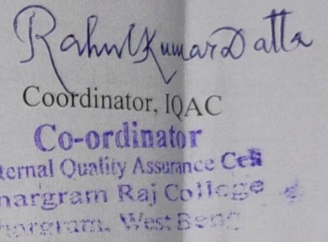 Rahul Kumar Datta
Coordinator, IQAC
Co-ordinator
ternal Quality Assurance Cell
hargram Raj College
hargram, West Beng